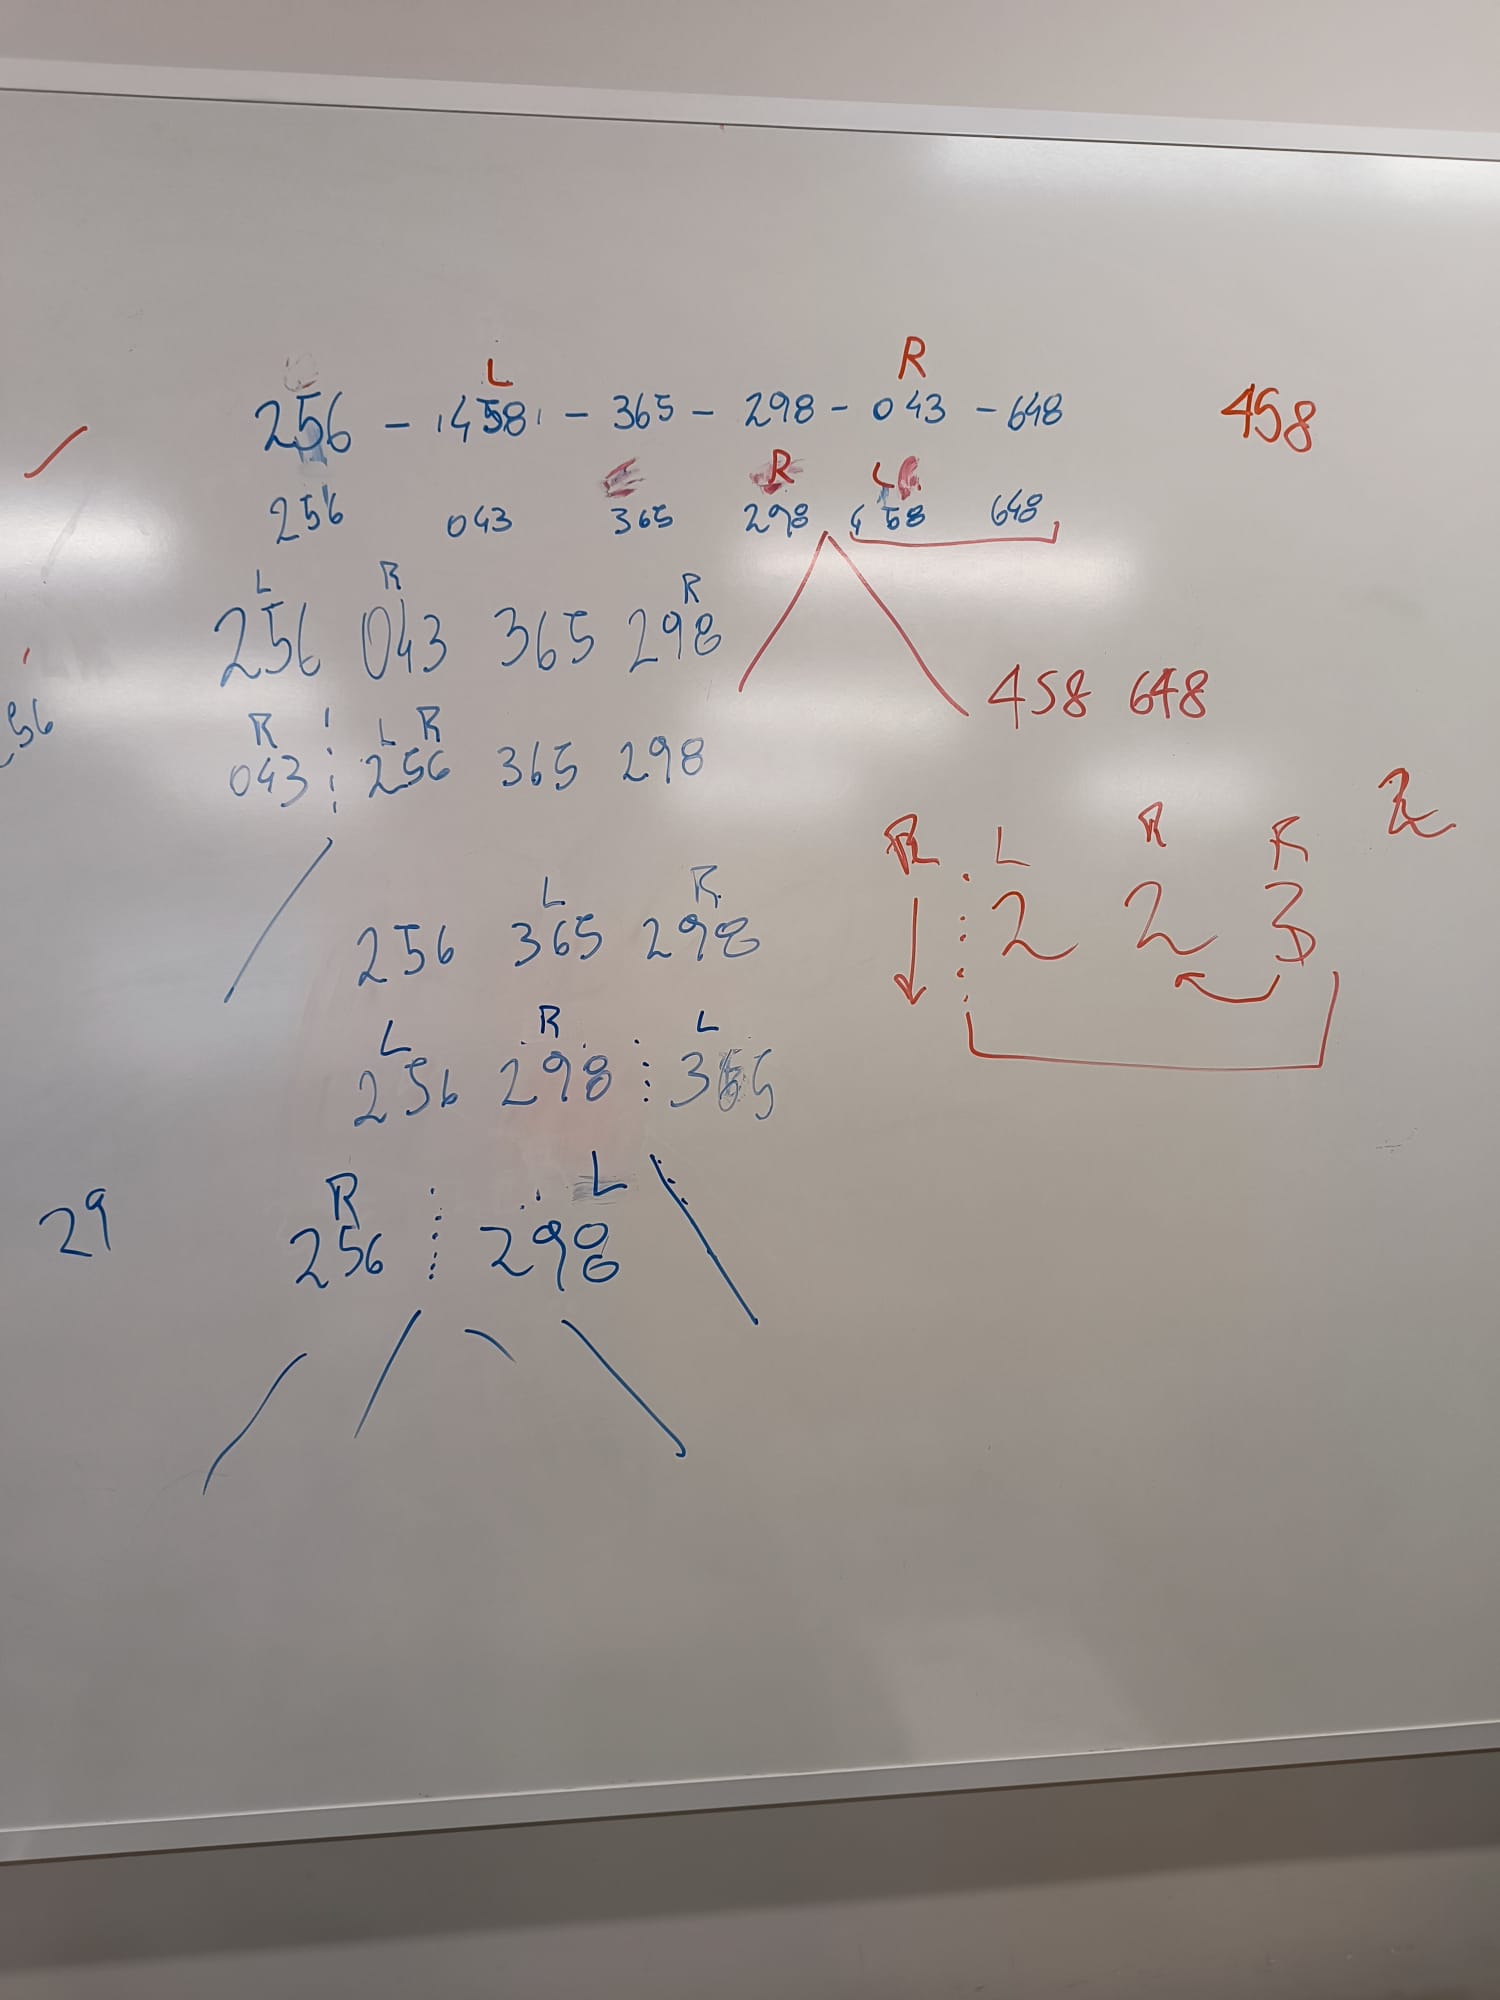 L R
256 - 458 - 365 - 298 - 043 - 648 458
R L
256 043 365 298 458 648
L R R
256 043 365 298
458 648
R L R
043 256 365 298
56
R L R R
2 2 3
L R
256 365 298
L R L
256 298 365
R L
256 298
29